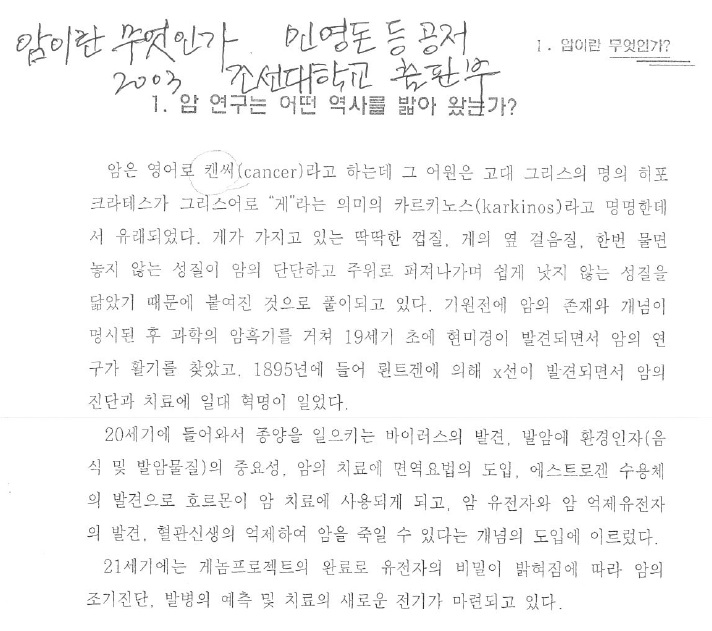 암이란 무엇인가 민영돈 등 공저
1. 암이란 무엇인가?
2003 조선대학교 출판부
1. 암 연구는 어떤 역사를 밟아 왔는가?
암은 영어로 캔써(cancer)라고 하는데 그 어원은 고대 그리스의 명의 히포
크라테스가 그리스어로 "게"라는 의미의 카르키노스(karkinos)라고 명명한데
서 유래되었다. 게가 가지고 있는 딱딱한 껍질, 게의 옆 걸음질, 한번 물면
놓지 않는 성질이 암의 단단하고 주위로 퍼져나가며 쉽게 낫지 않는 성질을
닮았기 때문에 붙여진 것으로 풀이되고 있다. 기원전에 암의 존재와 개념이
명시된 후 과학의 암흑기를 거쳐 19세기 초에 현미경이 발견되면서 암의 연
구가 활기를 찾았고, 1895년에 들어 뢴트겐에 의해 x선이 발견되면서 암의
진단과 치료에 일대 혁명이 일었다.
20세기에 들어와서 종양을 일으키는 바이러스의 발견, 발암에 환경인자(음
식 및 발암물질)의 중요성, 암의 치료에 면역요법의 도입, 에스트로겐 수용체
의 발견으로 호르몬이 암 치료에 사용되게 되고, 암 유전자와 암 억제유전자
의 발견, 혈관신생의 억제하여 암을 죽일 수 있다는 개념의 도입에 이르렀다.
21세기에는 게놈프로젝트의 완료로 유전자의 비밀이 밝혀짐에 따라 암의
조기진단, 발병의 예측 및 치료의 새로운 전기가 마련되고 있다.